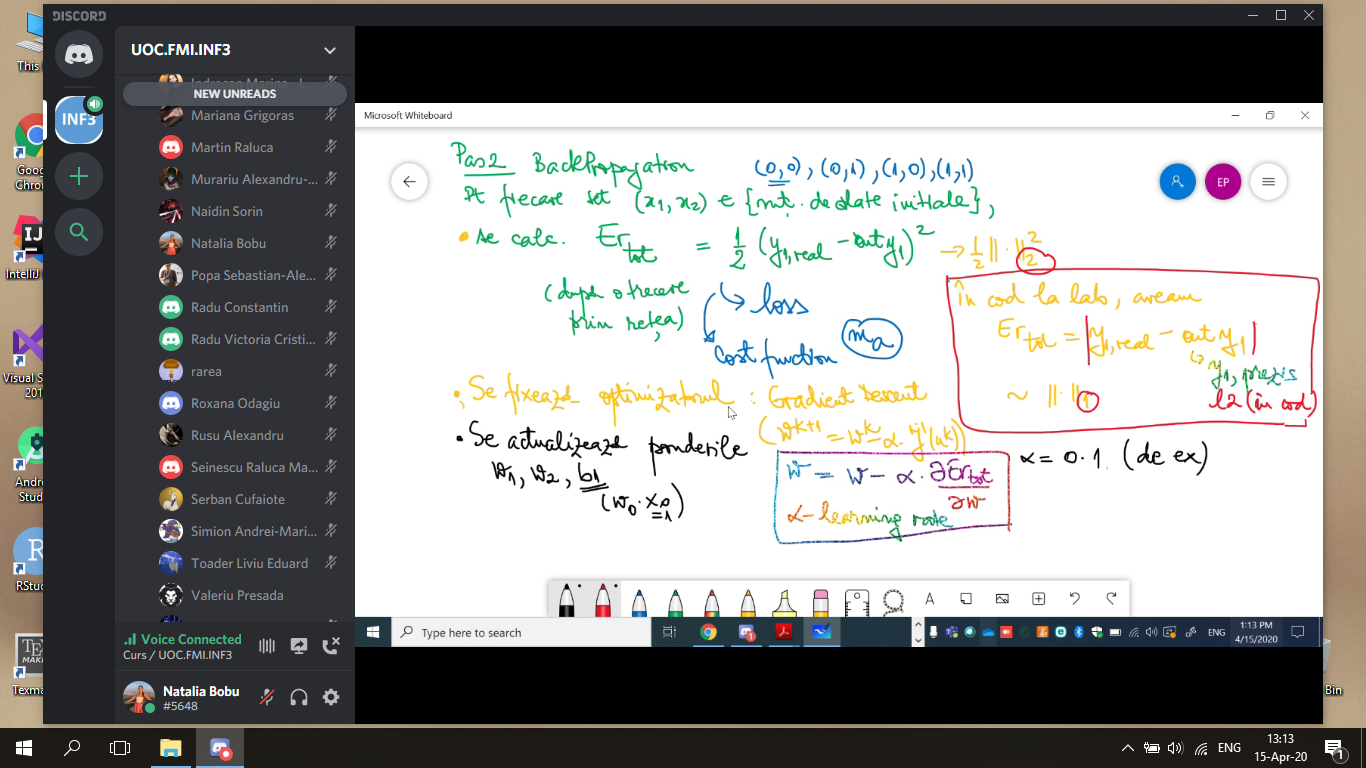 DISCORD
This
UOC.FMI.INF3
NEW UNREADS
INF3
Mariana Grigoras
Martin Raluca
Murariu Alexandru-...
Naidin Sorin
Natalia Bobu
Popa Sebastian-Ale...
Radu Constantin
Radu Victoria Cristi...
rarea
Roxana Odagiu
Rusu Alexandru
Seinescu Raluca Ma...
Serban Cufaiote
Simion Andrei-Mari...
Toader Liviu Eduard
Valeriu Presada
Voice Connected
Curs / UOC.FMI.INF3
Natalia Bobu
#5648
Goog
Chro
IntelliJ
Visual S
201
Andro
Stud
RStud
TEX
MAK
Texma
Bin
Microsoft Whiteboard
EP
Pas2 BackPropagation (0,0), (0,1), (1,0), (1,1)
Pt fiecare set (x1, x2) ∈ {mt. de date initiale},
• Se calc. Er tot = 1/2 (y1,real - out y1)² → 1/2 ||·||₂²
(după o trecere
prin rețea)
loss
cost function
în cod la lab, aveam
Er tot = |y1,real - out y1|
y1, prezis
~ ||·||1
l2 (în cod)
• Se fixează optimizatorul : Gradient Descent
(w^k+1 = w^k - α · J'(w^k))
• Se actualizează ponderile
w1, w2, b1
(w0 · x0)
=1
w = w - α · ∂Er tot / ∂w
α - learning rate
α = 0.1 (de ex)
A
Type here to search
ENG
1:13 PM
4/15/2020
ENG
13:13
15-Apr-20
1